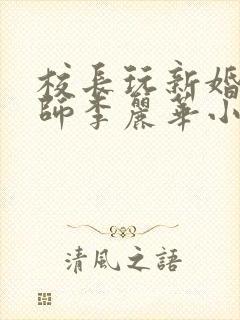 校長玩新婚
師李麗華小
清風之語